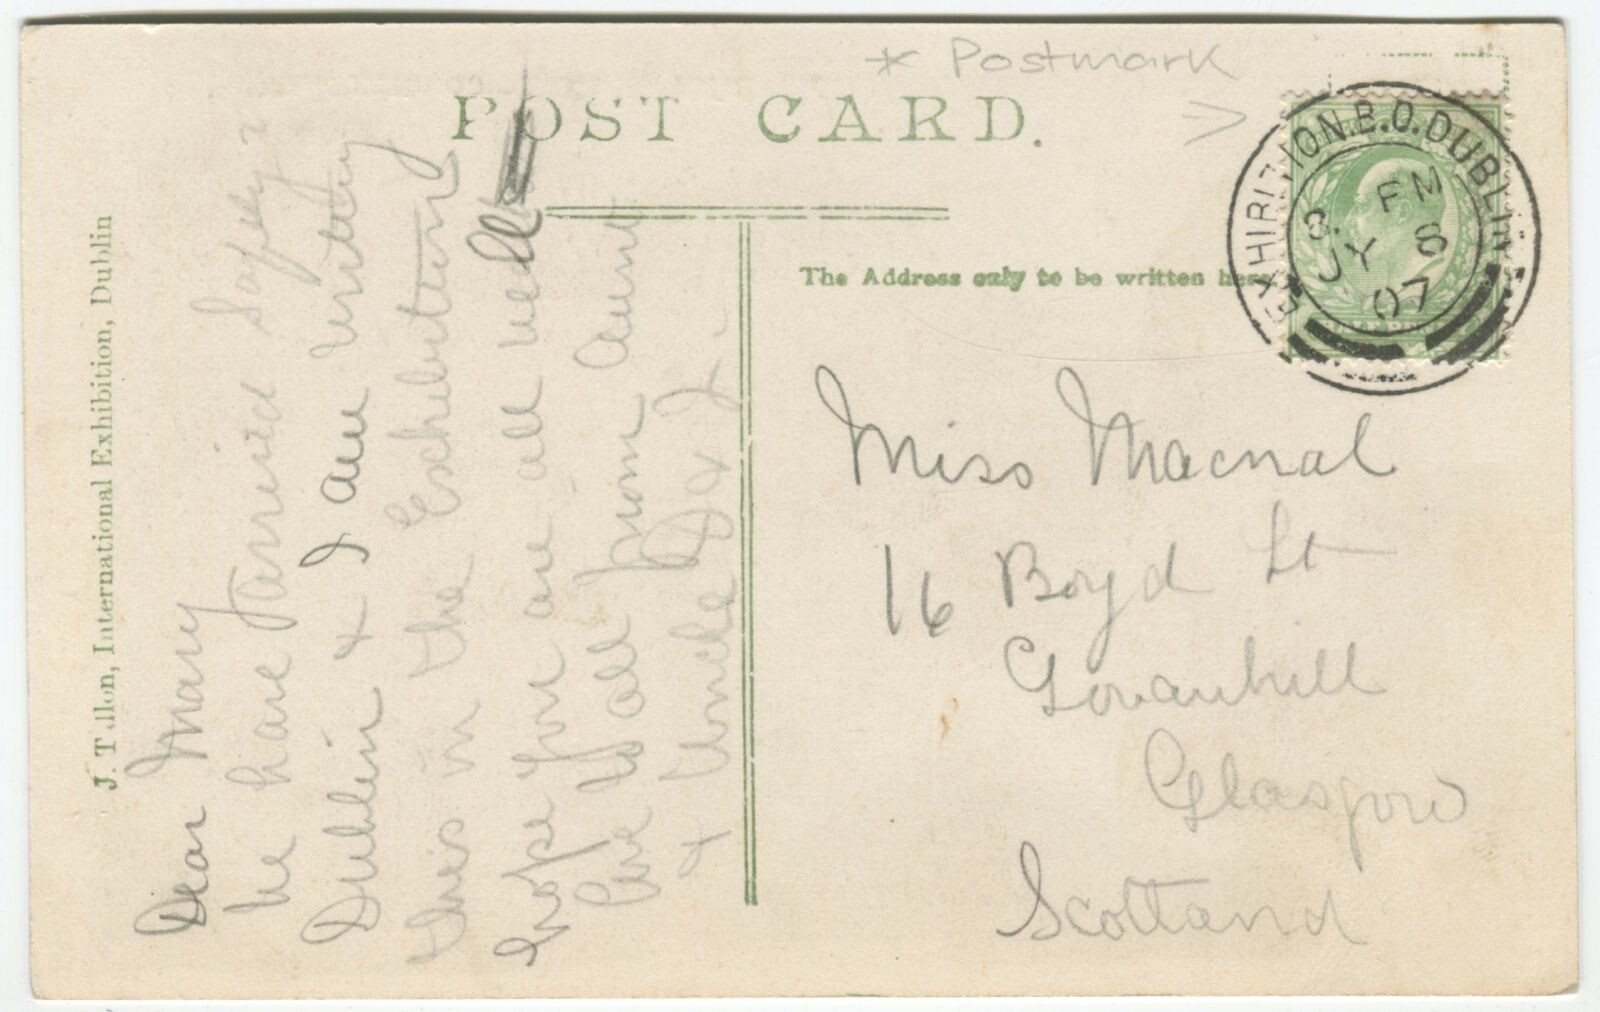 * Postmark
POST CARD.
The Address only to be written here
EXHIBITION.B.O.DUBLIN
PM
JY 8
07
Miss Macnab
16 Boyd St
Govanhill
Glasgow
Scotland
J. Tallon, International Exhibition, Dublin
Dear Mary
We have arrived Safely
Dublin & I am writing
this in the Exhibition
hope you are all well
love to all from Aunt
& Uncle